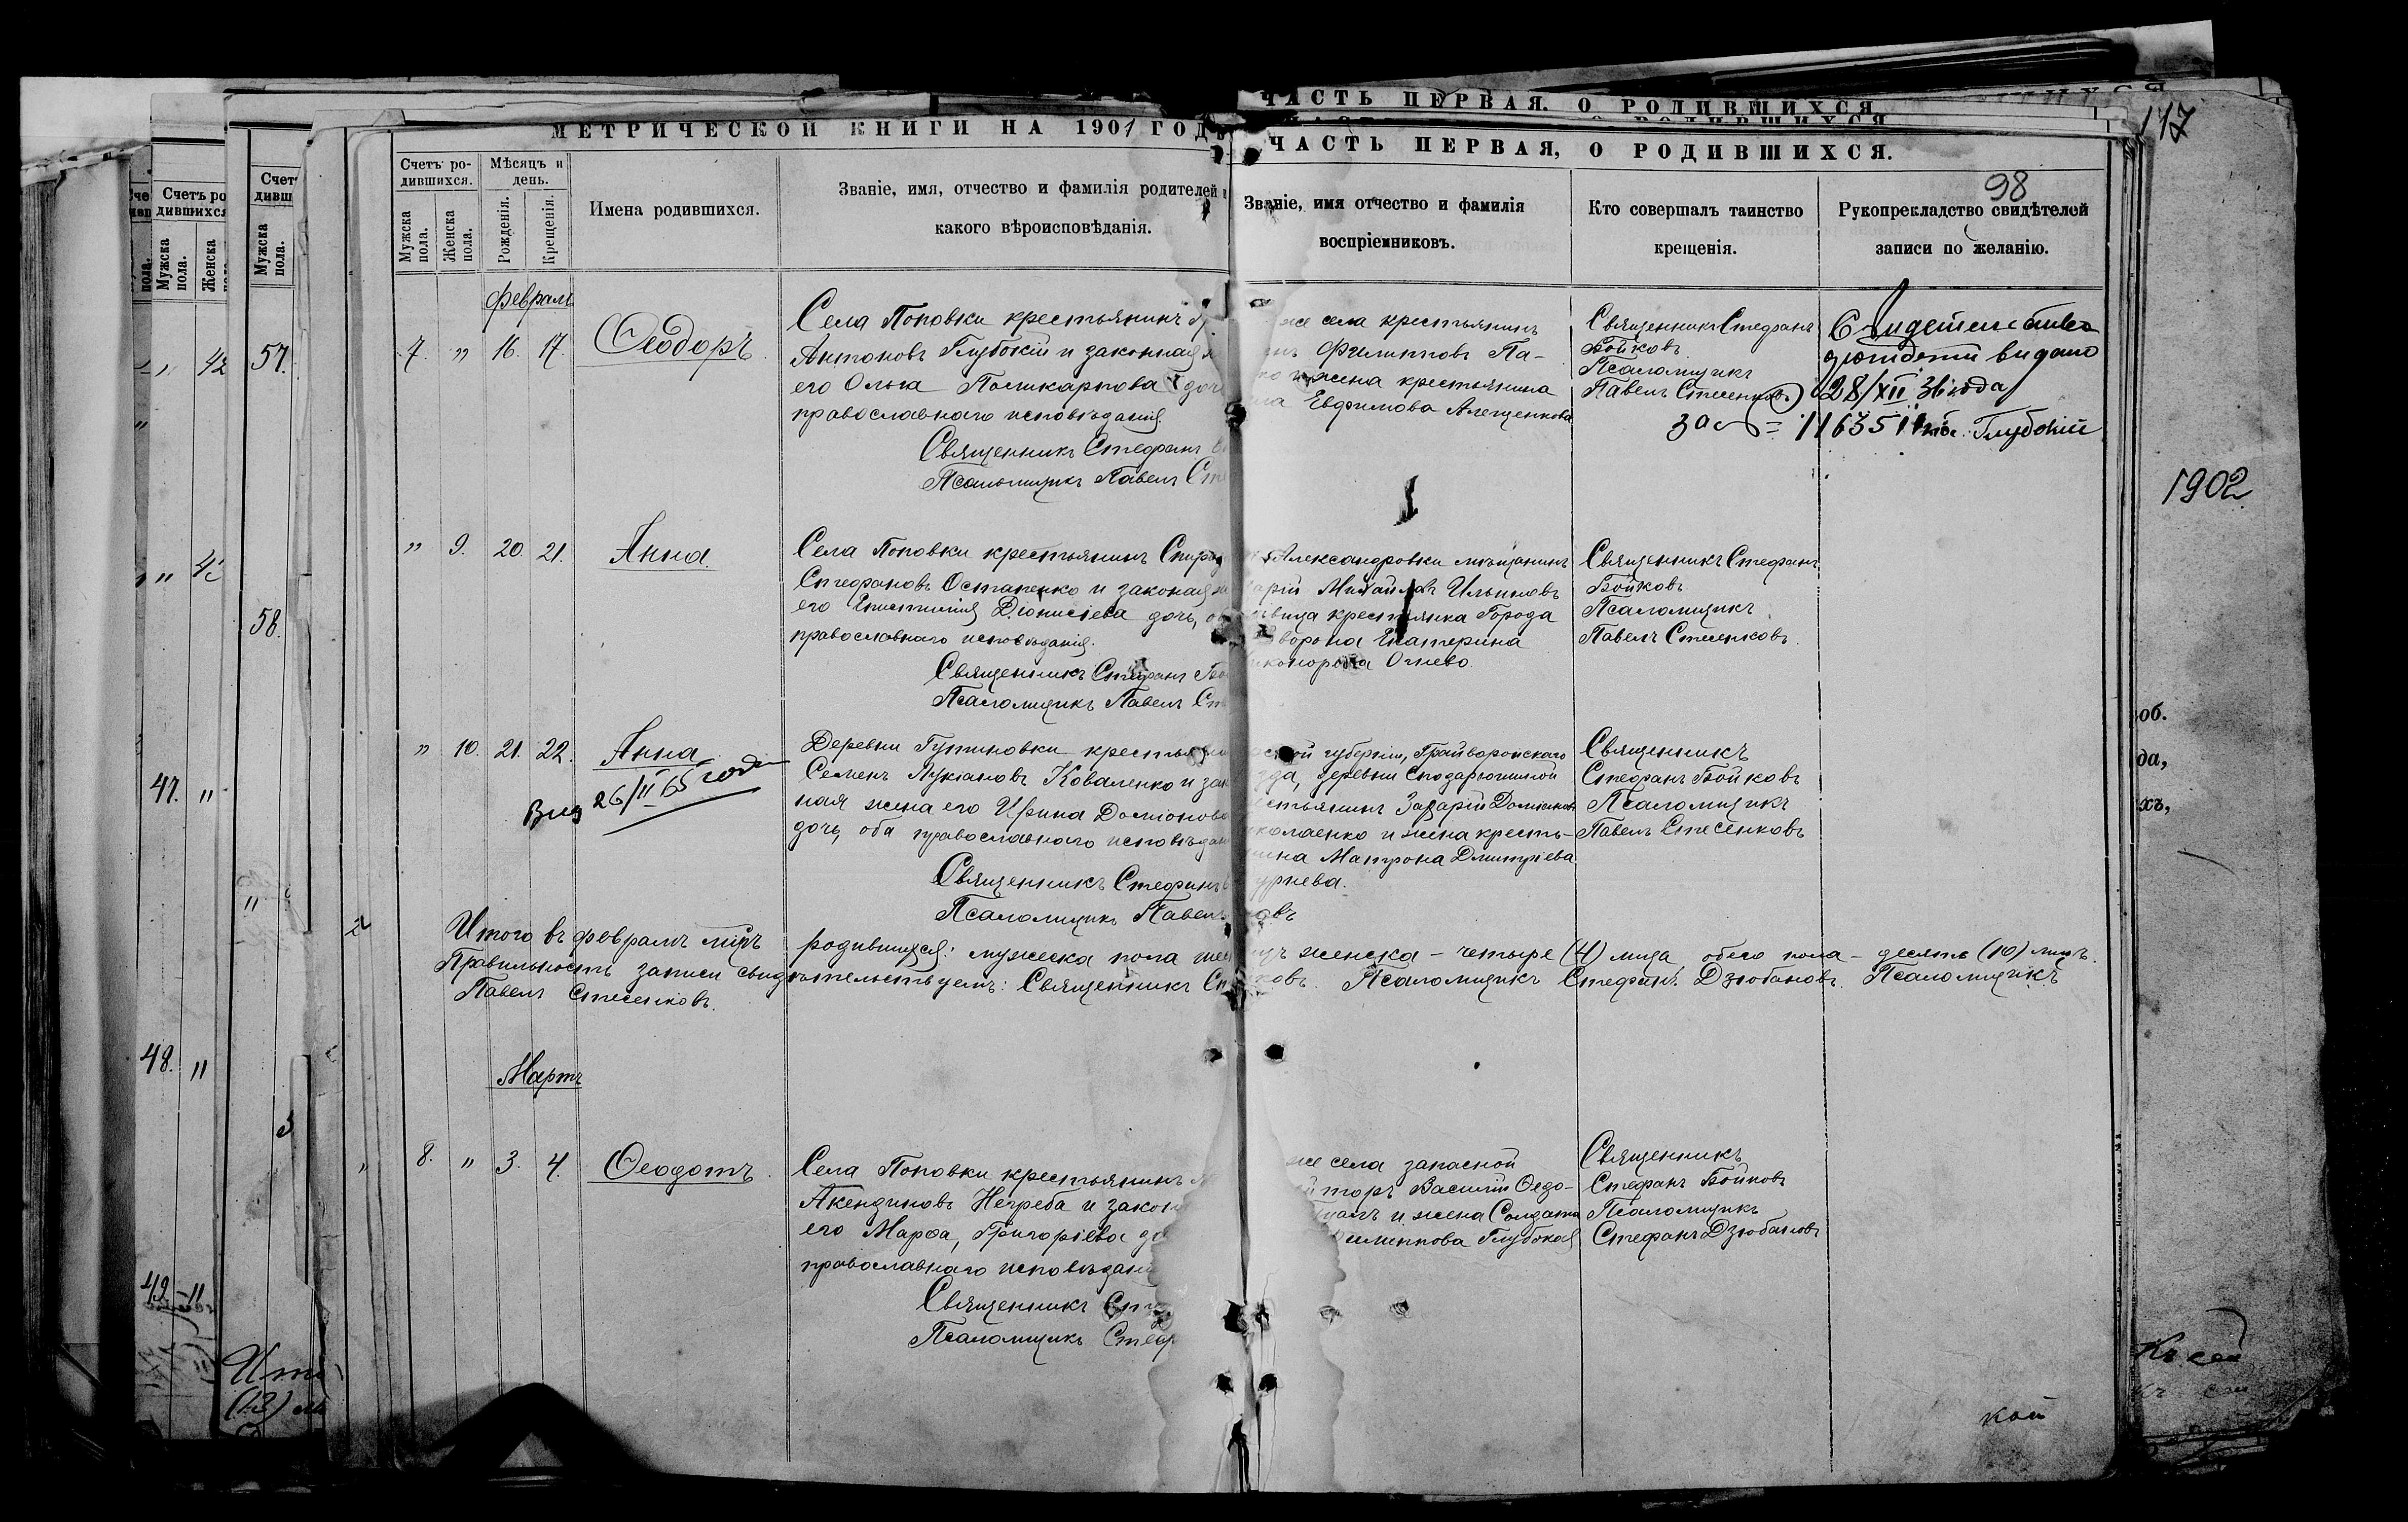 МЕТРИЧЕСКОЙ КНИГИ НА 1901 ГОДЪ
ЧАСТЬ ПЕРВАЯ. О РОДИВШИХСЯ
ЧАСТЬ ПЕРВАЯ, О РОДИВШИХСЯ.
147
98
1902
Счетъ ро-
дившихся.
Мужска пола.
Женска пола.
Мѣсяцъ и
день.
Рожденія.
Крещенія.
Имена родившихся.
Званіе, имя, отчество и фамилія родителей и
какого вѣроисповѣданія.
Званіе, имя отчество и фамилія
воспріемниковъ.
Кто совершалъ таинство
крещенія.
Рукоприкладство свидѣтелей
записи по желанію.
Февраль
7. " 16. 17. Ѳеодоръ.
Села Поповки крестьянинъ
Антоновъ Глубокій и законная
его Ольга Поликарпова доч
православнаго исповѣданія.
Священникъ Стефанъ
Псаломщикъ Павелъ
же села крестьянинъ
Филипповъ Па-
жена крестьянина
Евфимова Алещенкова
Священникъ Стефанъ
Бойковъ
Псаломщикъ
Павелъ Стесенковъ
Свидетельство
видано
28/XII 36 года
116351 Глубокій
" 9. 20. 21. Анна.
Села Поповки крестьянинъ Спирид
Стефановъ Остапенко и законая
его Епистимія Діонисіева дочь, об
православнаго исповѣданія.
Священникъ Стефанъ Бо
Псаломщикъ Павелъ Ст
Александровки мѣщанинъ
Михайловъ Ильиновъ
вица крестьянка Города
ворона Екатерина
Огнево.
Священникъ Стефанъ
Бойковъ
Псаломщикъ
Павелъ Стесенковъ.
" 10. 21. 22. Анна
Вид 26/II 65 года
Деревни Гутниновки крестьянин
Семенъ Лукіановъ Коваленко и зак
ная жена его Ирина Доміонова
дочь, оба православнаго исповѣдан
Священникъ Стефанъ
Псаломщикъ Павелъ
ской губерніи, Грайворонскаго
зда, деревни Сподарюшиной
стьянинъ Захарій Доміановъ
коленко и жена кресть-
нина Матрона Дмитріева
урнева.
Священникъ
Стефанъ Бойковъ
Псаломщикъ
Павелъ Стесенковъ
Итого въ февралѣ мцѣ родившихся: мужеска пола шес женска - четыре (4) лица обего пола - десять (10) лицъ.
Правильность записи свидѣтельствуемъ: Священникъ Ст ковъ. Псаломщикъ Стефанъ Дзюбановъ. Псаломщикъ
Павелъ Стесенковъ.
Мартъ
8. " 3. 4. Ѳеодотъ.
Села Поповки крестьянинъ
Акендиновъ Негреба и закон
его Марѳа, Григоріева до
православнаго исповѣдані
Священникъ Сте
Псаломщикъ Стеф
же села запасной
торъ Василій Ѳедо-
и жена Солдата
Филиппова Глубокая
Священникъ
Стефанъ Бойковъ
Псаломщикъ
Стефанъ Дзюбановъ
кой
42
57.
58.
47. "
48. "
49 - "
об.
да,
хъ,